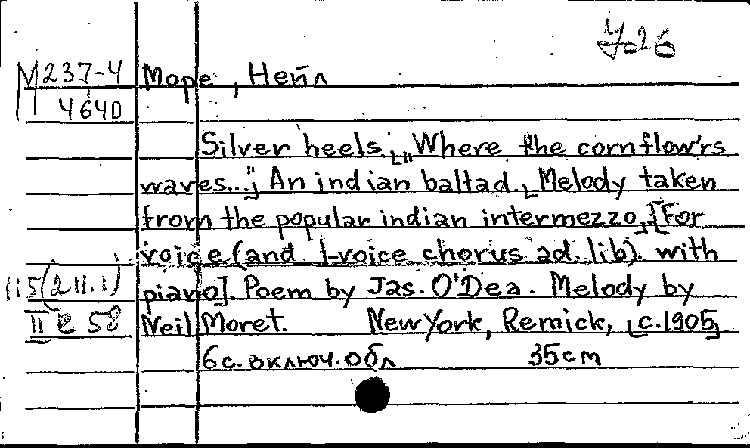 У-26
М237-4 Море, Нейл
4640
Silver heels. „Where the cornflow'rs
waves..."; An indian ballad. Melody taken
from the popular indian intermezzo. [For
voice (and 1-voice chorus ad. lib). with
115(211.1) piano]. Poem by Jas. O'Dea. Melody by
II е 58 Neil Moret. New York, Remick, [c.1905]
6с. включ. обл 35cm